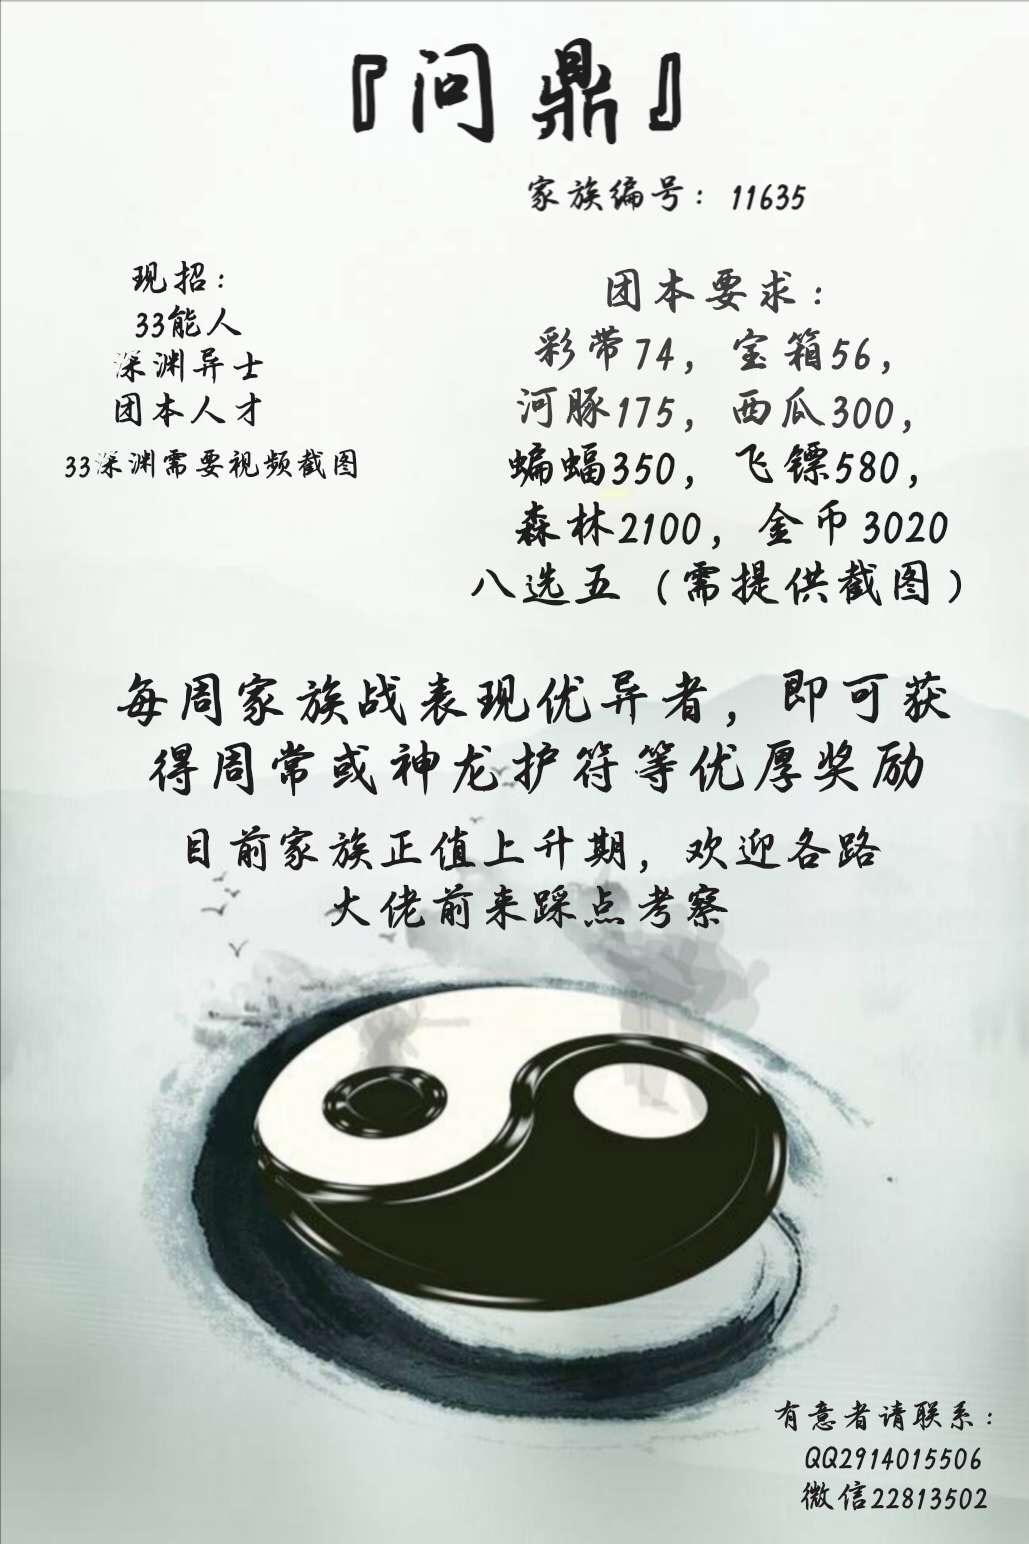 『问鼎』
家族编号：11635
现招：
33能人
深渊异士
团本人才
33深渊需要视频截图
团本要求：
彩带74，宝箱56，
河豚175，西瓜300，
蝙蝠350，飞镖580，
森林2100，金币3020
八选五（需提供截图）
每周家族战表现优异者，即可获
得周常或神龙护符等优厚奖励
目前家族正值上升期，欢迎各路
大佬前来踩点考察
有意者请联系：
QQ2914015506
微信22813502